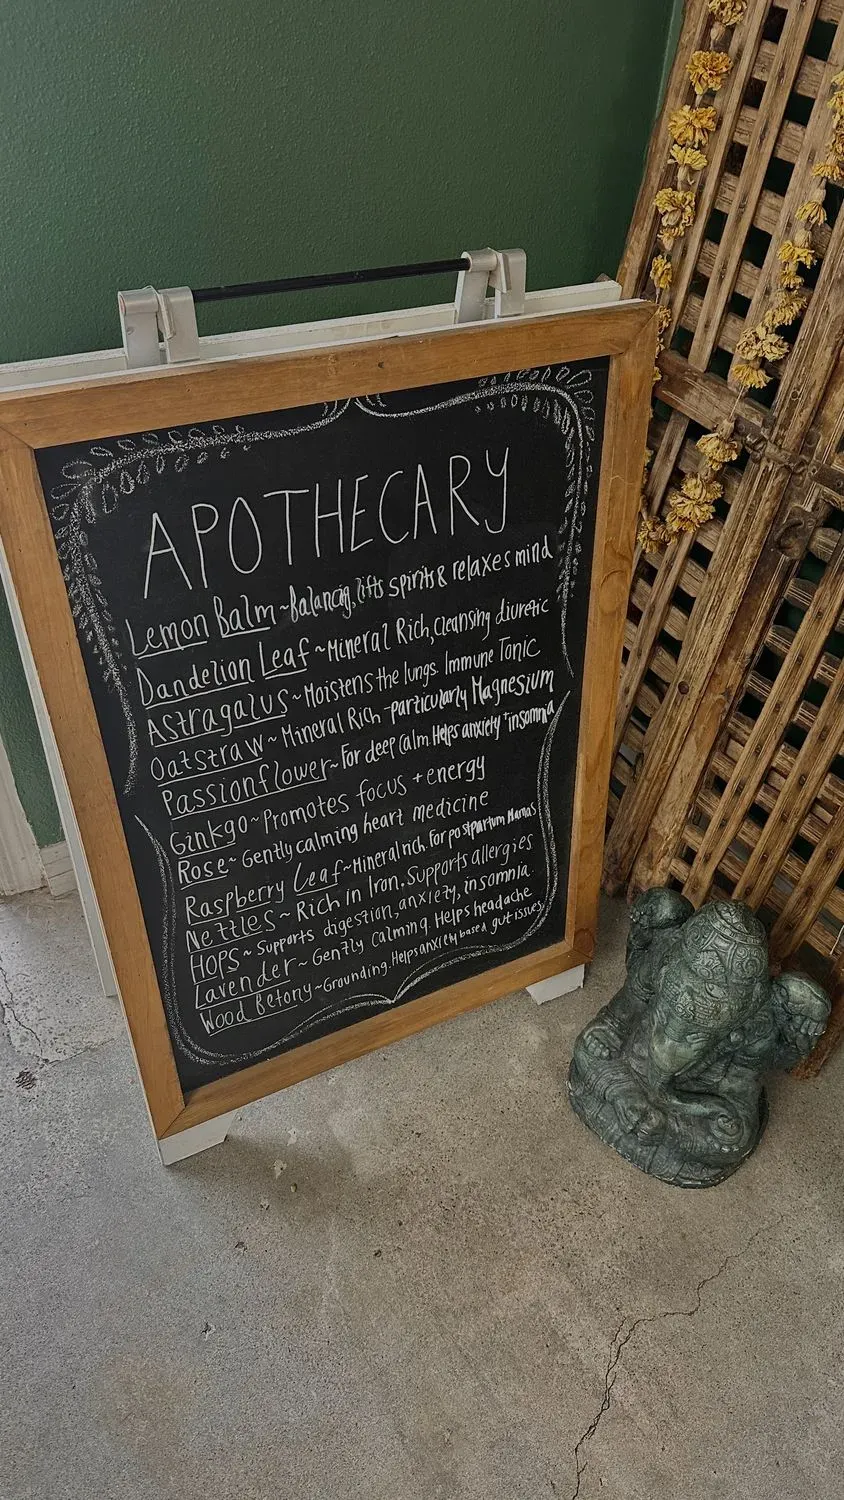 APOTHECARY
Lemon Balm ~ Balancing, lifts spirits & relaxes mind
Dandelion Leaf ~ Mineral Rich, cleansing diuretic
Astragalus ~ Moistens the lungs. Immune Tonic
Oatstraw ~ Mineral Rich - particularly Magnesium
Passionflower ~ For deep calm Helps anxiety + insomnia
Ginkgo ~ Promotes focus + energy
Rose ~ Gently calming heart medicine
Raspberry Leaf ~ Mineral rich. For postpartum Mama's
Nettles ~ Rich in Iron. Supports allergies
HOPS ~ Supports digestion, anxiety, insomnia.
Lavender ~ Gently Calming. Helps headache
Wood Betony ~ Grounding. Helps anxiety based gut issues